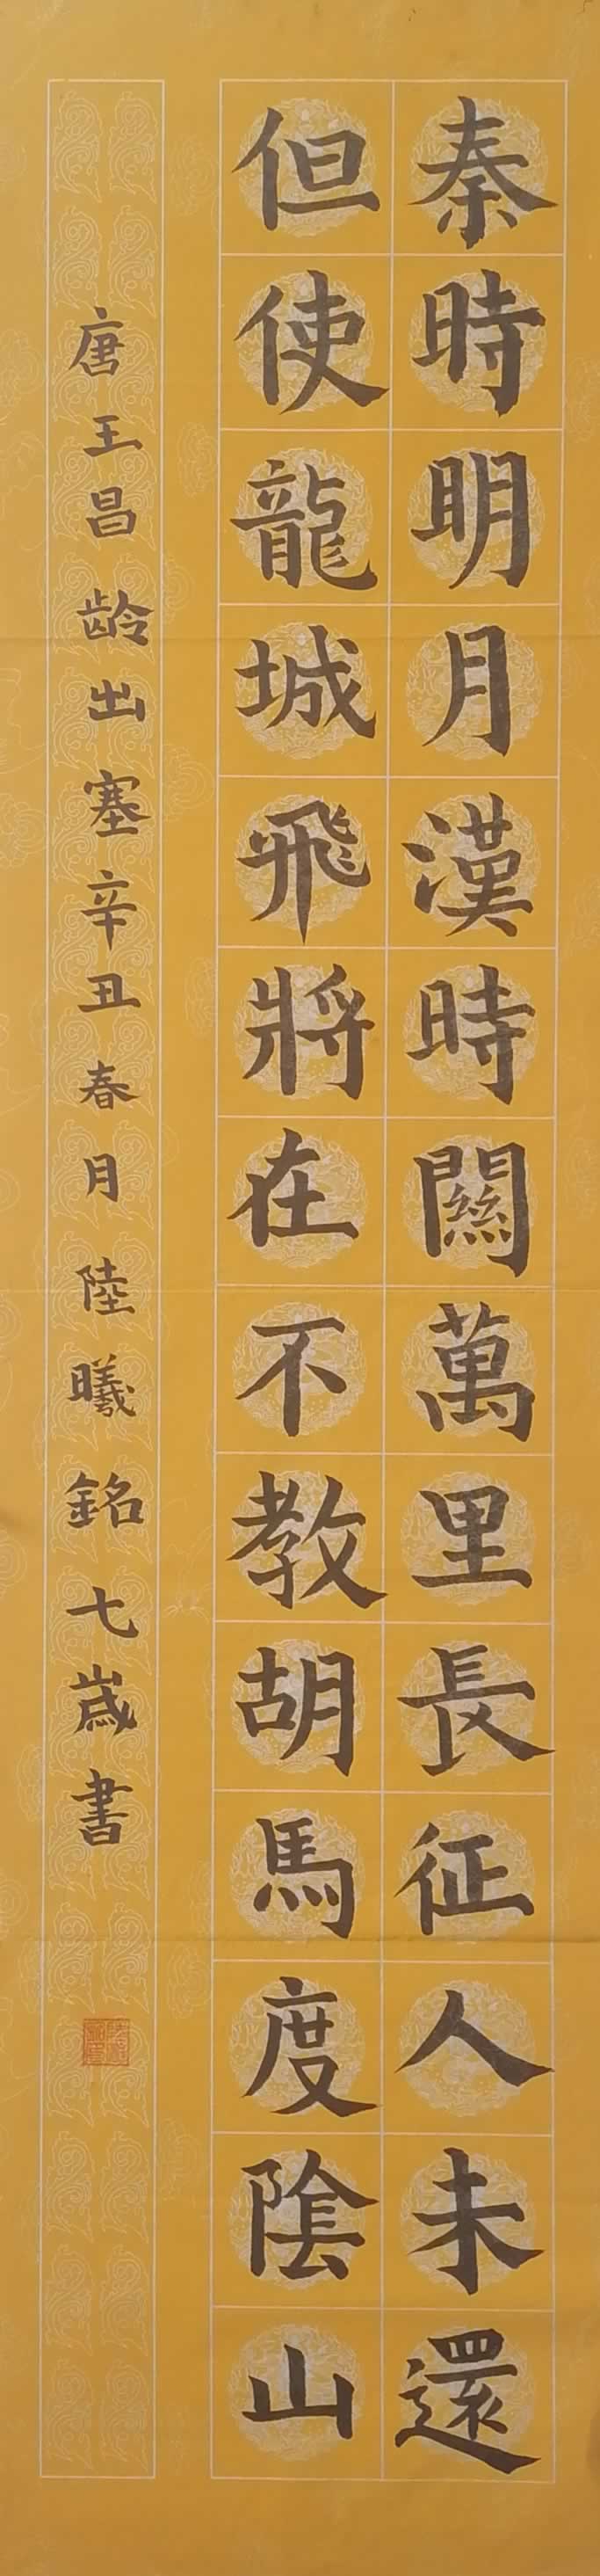 秦時明月漢時關萬里長征人未還
但使龍城飛將在不教胡馬度陰山
唐王昌齡出塞辛丑春月陸曦銘七歲書